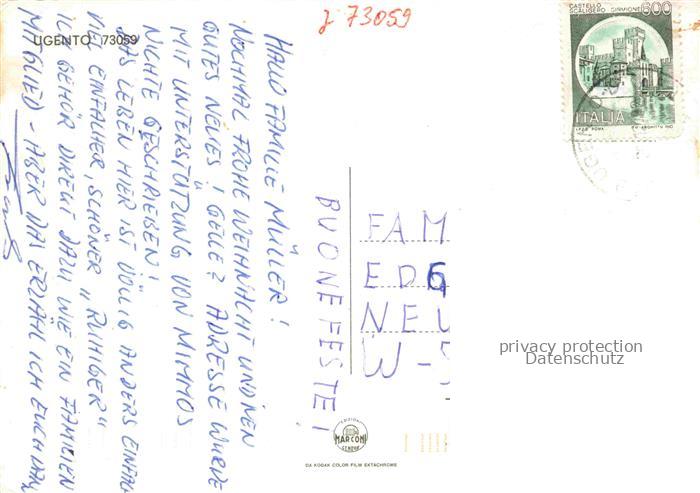 UGENTO 73059
z 73059
CASTELLO
SCALIGERO SIRMIONE 600
ITALIA
I.P.Z.S. ROMA
HALLO FAMILIE MÜLLER!
NOCHMAL FROHE WEIHNACHT UND NEN
GUTES NEUES! GELLE? ADRESSE WURDE
MIT UNTERSTÜTZUNG VON MIMMOS
NICHTE GESCHRIEBEN!
DAS LEBEN HIER IST VÖLLIG ANDERS EINFACH
VIEL EINFACHER, SCHÖNER "RUHIGER"
ICH GEHÖR DIREKT DAZU WIE EIN FAMILIEN
MITGLIED - ABER DAS ERZÄHL ICH EUCH DANN
BUONE FESTE!
FAM
EDG
NEU
W-5
privacy protection
Datenschutz
EDIZIONI
MARCONI
GENOVA
DA KODAK COLOR FILM EKTACHROME